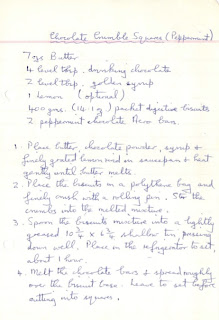 Chocolate Crumble Squares (Peppermint)
7 ozs Butter
4 level tbsp. drinking chocolate
2 level tbsp. golden syrup
1 Lemon (optional)
400 gms. (14.1 oz) packet digestive biscuits
2 peppermint chocolate Aero bars.
1. Place butter, chocolate powder, syrup &
finely grated lemon rind in saucepan & heat
gently until butter melts.
2. Place the biscuits in a polythene bag and
finely crush with a rolling pin. Stir the
crumbs into the melted mixture.
3. Spoon the biscuit mixture into a lightly
greased 10 ¾ x 6 ¾ shallow tin, pressing
down well. Place in the refrigerator to set,
about 1 hour.
4. Melt the chocolate bars & spread roughly
over the biscuit base. Leave to set before
cutting into squares.